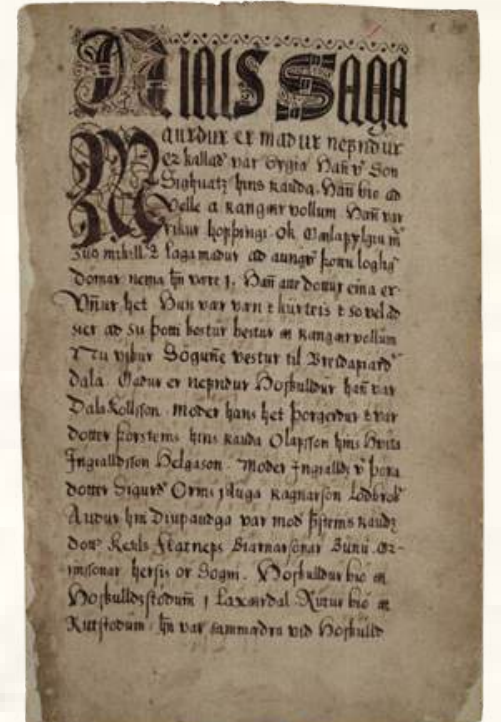 NIALS SAGA
Maurdur er madur nefndur
er kallad var Gygia Hañ v Son
Sighuatz hins Rauda. Hañ bio ad
Velle a Rangar vollum. Hañ var
rikur hofþingi. ok
Suo mikill Lagamadur ad aungv þottu loglig
domar nema hñ være j. Hañ atte dottur eina er
Vñur het. Hun var væn & kurteis & so vel ad
sier ad Su þotti bestur kostur a Rangar vollum
Nu vikur Sögunñe vestur til Breidafiard
dala. Madur er nefndur Hoskulldur hañ var
Dala Kollsson. Moder hans het Þorgerdur & var
dotter Þorsteins hins Rauda Olafsson hins Hvita
Ingialldsson Helgason. Moder Ingialldz v Þora
dotter Sigurd Orms j Auga Ragnarson Lodbrok
Audur hin Diupaudga var mod Þsteins Raudz
dott Ketils Flatnefs Biarnarsonar Bunu. Gr-
imssonar hersis or Sogni. Hoskulldur bio a
Hoskulldzstodum j Laxardal. Rutur bio a
Rutstodum. hñ var sammædra vid Hoskulld